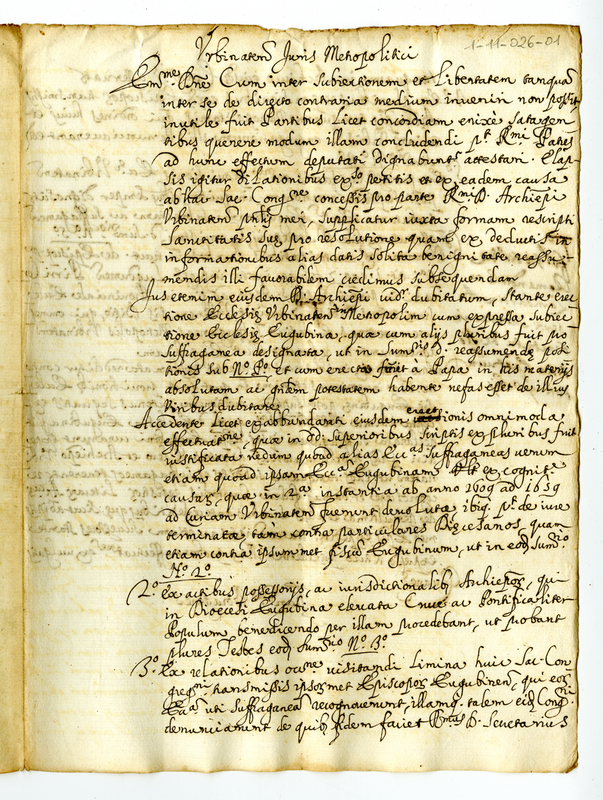 1-11-026-01
Vrbinaten Juris Metropolitici
Em.me Dne Cum inter subiectionem et libertatem tanquā
inter se de directo contraria medium inveniri non possit
inutile fuit Partibus licet concordiam enixè satagen
tibus querere modum illam concludendi pt Rmi Patres
ad hunc effectum deputati dignabunt attestari. Elap
sis igitur dilationibus petitis et ex eadem causa
ab hac Sac. Cong.ne concessis pro parte Rmi D. Archiepi
Vrbinaten mei, supplicatur iuxta formam rescripti
Sanctitatis Suę pro resolutione quam ex deductis in
informationibus alias datis solita benignitate reassu-
mendis illi favorabilem credimus subsequendam
Jus etenim eiusdem D. Archiepi dubitatum, stante erec
tione Ecclesię Vrbinaten in Metropolim cum expressa subiec
tione Ecclesię Eugubina, quæ cum alijs pluribus fuit pro
suffraganea designata, ut in Sum. reassumendę
tionis sub N.º P.º et cum erectio fuerit à Papa in his materijs
absolutam ac potestatem habente nefas esset de illius
Viribus dubitare
Accedente licet ex abbundanti eiusdem erectionis omnimoda
effectuatne, quæ in superioribus scriptis ex pluribus fuit
iustificata nedum quoad alias Ecc.as suffraganeas verum
etiam quoad ipsam Ecc.a Eugubinam ex cognitne
causarę, quæ in 2.a instantia ab anno 1609 ad 1659
ad Curiam Vrbinaten fuerunt devolutæ ibiq. de iure
terminatæ tam contra particulares Dięcesanos, quam
etiam contra ipsummet fiscū Eugubinum, ut in eod Sum.rio
N.º 2.º
2.º Ex actibus possessorijs, ac iurisdictionalib Archiepor, qui
in Diocesi Eugubina elevata Cruce ac Pontificaliter
Populum benedicendo per illam procedebant, ut probant
plures Testes eod Sum.rio N.º 3.º
3.º Ex relationibus visitandi Limina huic Sac. Con
gregni transmissis ipsormet Episcopor Eugubinen, qui eor
Ecc.am uti suffraganeam recognoverunt, illamq. talem eid Cong.ni
denunciarunt de quib fidem faciet D. Secretarius